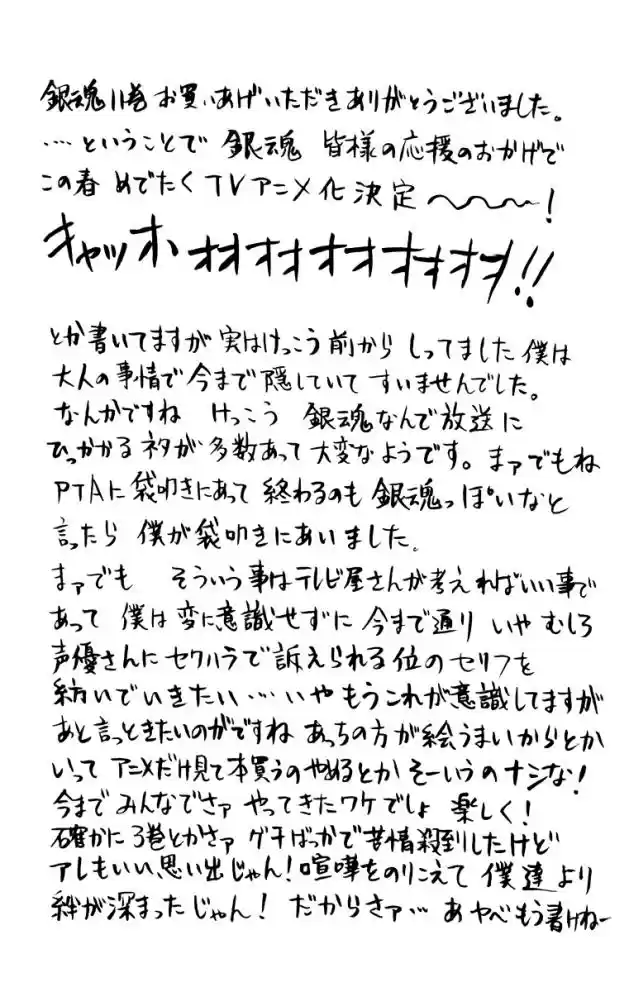 銀魂11巻お買いあげいただきありがとうございました。
…ということで 銀魂 皆様の応援のおかげで
この春 めでたく TVアニメ化決定〜〜〜!
キャッホォオオオオオオオオオ!!
とか書いてますが実はけっこう前から しってました僕は
大人の事情で今まで隠していて すいませんでした。
なんかですね けっこう 銀魂なんで放送に
ひっかかるネタが多数あって大変なようです。まァでもね
PTAに袋叩きにあって 終わるのも銀魂っぽいなと
言ったら 僕が袋叩きにあいました。
まァでも そういう事はテレビ屋さんが考えればいい事で
あって 僕は変に意識せずに今まで通り いや むしろ
声優さんにセクハラで訴えられる位のセリフを
紡いでいきたい…いや もうこれが意識してますが
あと言っときたいのがですね あっちの方が絵うまいからとか
いって アニメだけ見て本買うのやめるとか そーいうのナシな!
今までみんなでさァ やってきたワケでしょ 楽しく!
確かに3巻とかさァ ゲボばっかで苦情殺到したけど
アレもいい思い出じゃん!喧嘩をのりこえて 僕達より
絆が深まったじゃん! だからさァ… あ ヤベもう書けねー